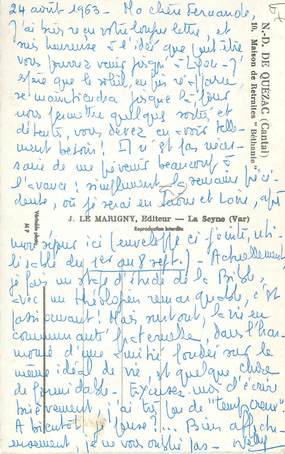 24 août 1963 - Ma chère Fernande,
J'ai bien reçu votre longue lettre, et
suis heureuse à l'idée que peut-être
vous pourrez venir jusqu'à Lyon - J'es-
père que le soleil, enfin réapparu
se maintiendra jusque là, pour
vous permettre quelques sorties et
détente, vous devez en avoir telle-
ment besoin! Il n'est pas néces-
saire de me prévenir beaucoup à
l'avance: simplement la semaine précé-
dente, où je serai en Saône et Loire, après
mon séjour ici (enveloppe ci-jointe, uti-
lisable du 1er au 8 sept.) - Actuellement
je fais un stage d'étude de la Bible,
avec un théologien remarquable, c'est
passionnant! Mais surtout, la vie en
communauté fraternelle, dans l'har-
monie d'une amitié fondée sur le
même idéal de vie est quelque chose
de formidable - Excusez-moi d'écrire
brièvement, j'ai très peu de "temps creux".
A bientôt je pense!... Bien affectu-
eusement, je ne vous oublie pas -
N.-D. DE QUEZAC (Cantal)
10. Maison de Retraites "Béthanie"
J. LE MARIGNY, Editeur — La Seyne (Var)
Reproduction Interdite
Véritable photo